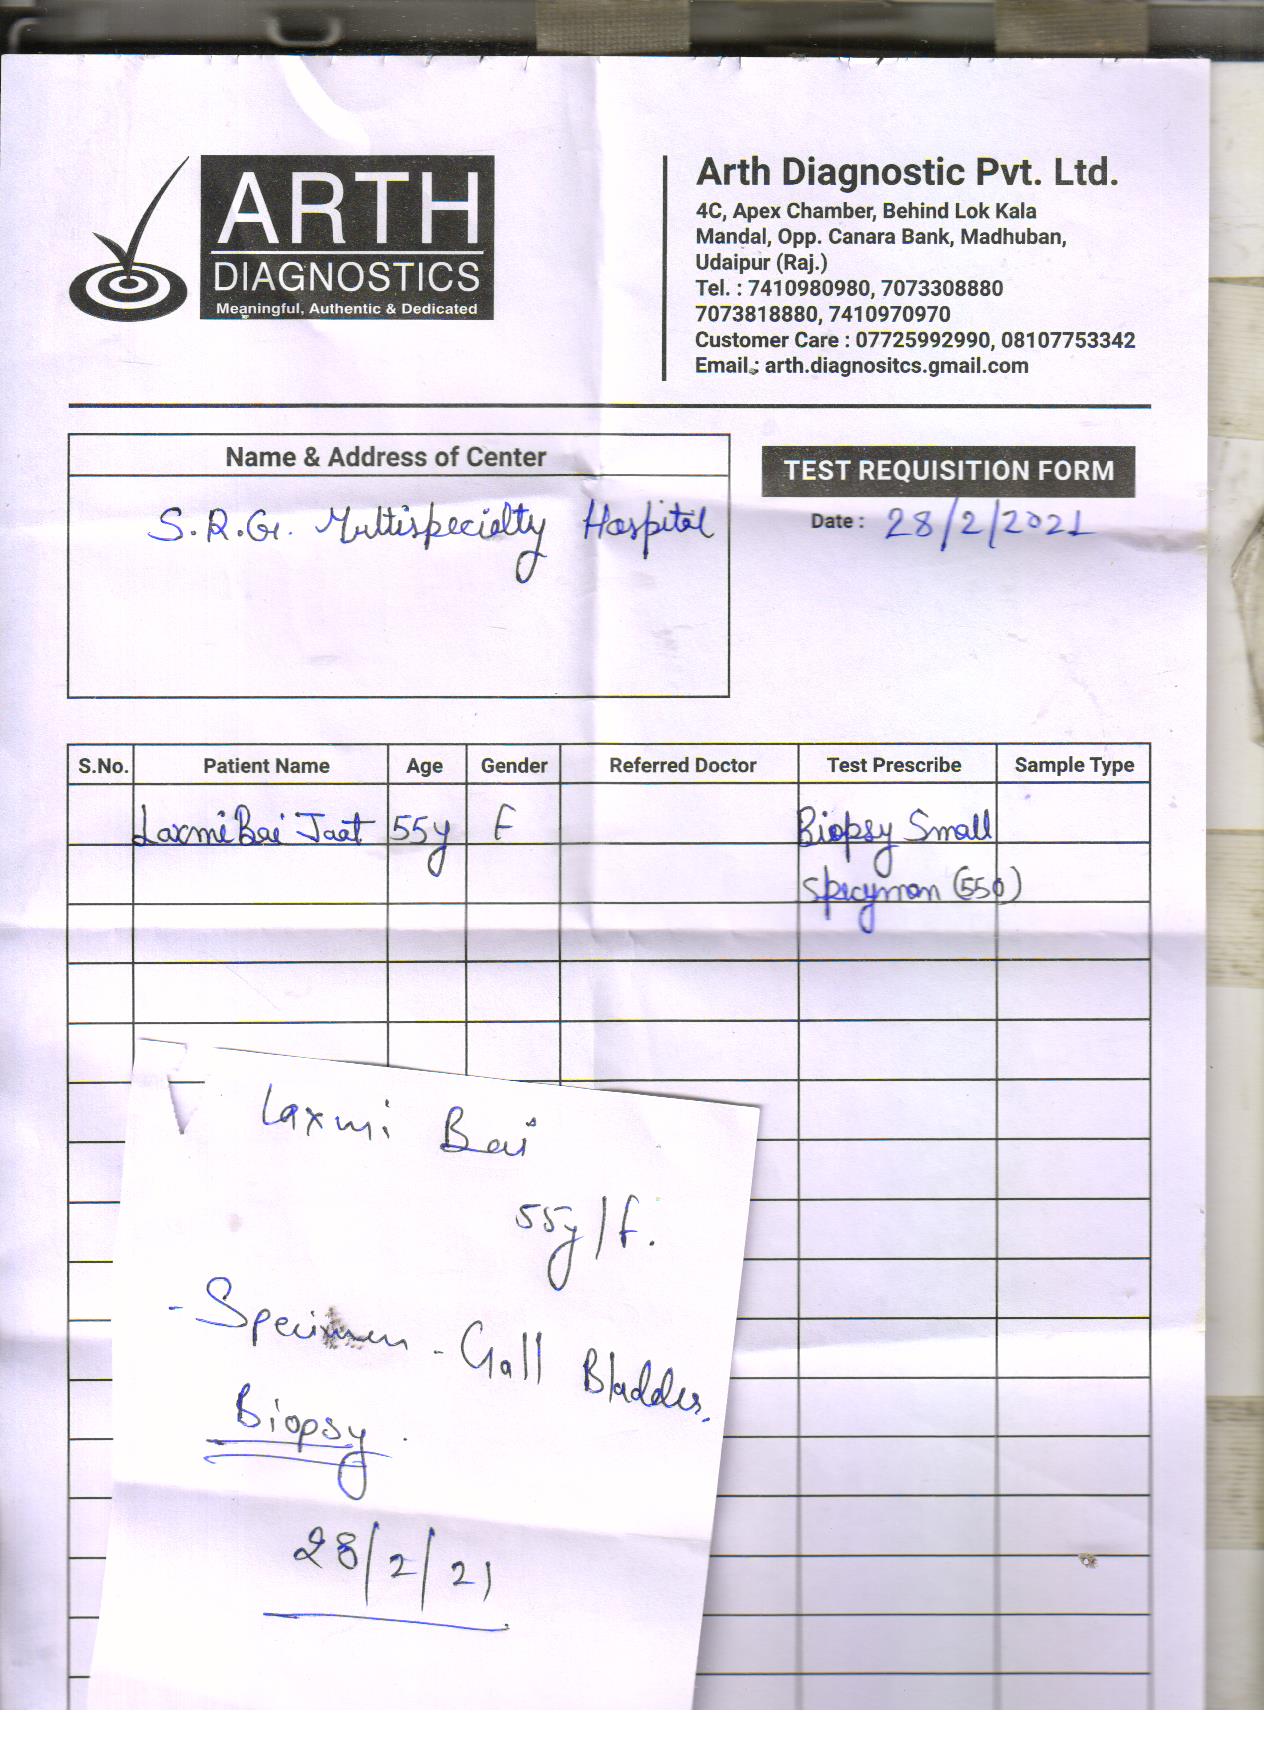 ARTH
DIAGNOSTICS
Meaningful, Authentic & Dedicated
Arth Diagnostic Pvt. Ltd.
4C, Apex Chamber, Behind Lok Kala
Mandal, Opp. Canara Bank, Madhuban,
Udaipur (Raj.)
Tel. : 7410980980, 7073308880
7073818880, 7410970970
Customer Care : 07725992990, 08107753342
Email : arth.diagnositcs.gmail.com
Name & Address of Center
S.R.G. Multispecialty Hospital
TEST REQUISITION FORM
Date : 28/2/2021
S.No. Patient Name Age Gender Referred Doctor Test Prescribe Sample Type
Laxmi Bai Jaat 55y F Biopsy Small
Specyman (550)
Laxmi Bai
55y/F.
- Specimen - Gall Bladder.
Biopsy.
28/2/21